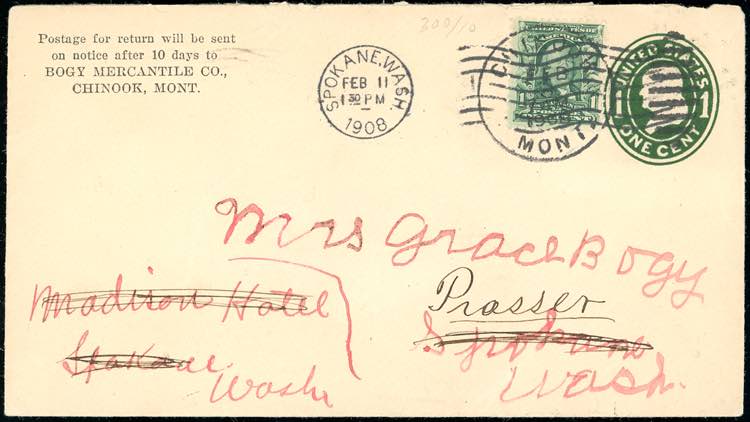 Postage for return will be sent
on notice after 10 days to
BOGY MERCANTILE CO.,
CHINOOK, MONT.
300/10
SPOKANE, WASH
FEB 11
1 30 PM
1908
MONT
UNITED STATES
1 1
ONE CENT
Mrs Grace Bogy
Prosser
Spokane
Wash.
Madison Hotel
Spokane
Wash